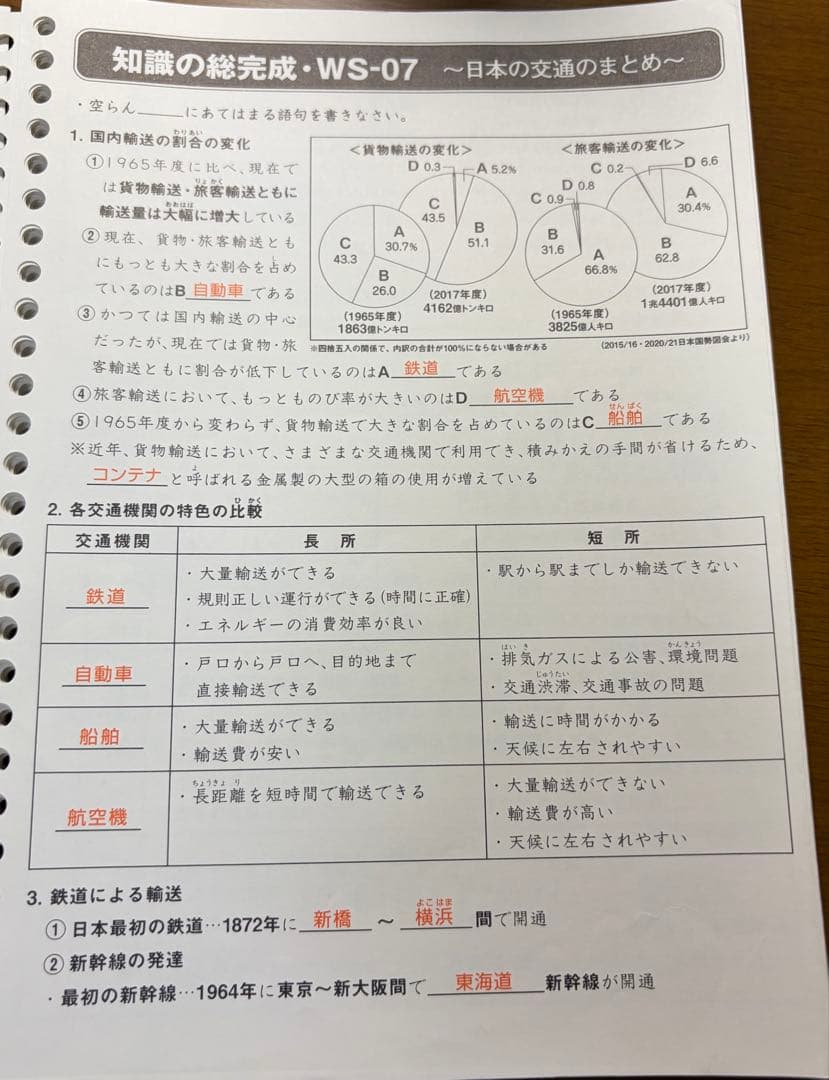 知識の総完成・WS-07 ～日本の交通のまとめ～
・空らん______にあてはまる語句を書きなさい。
1. 国内輸送の割合の変化
わりあい
①1965年度に比べ、現在で
は貨物輸送・旅客輸送ともに
りょ かく
輸送量は大幅に増大している
おおはば
②現在、貨物・旅客輸送とも
にもっとも大きな割合を占め
し
ているのはB 自動車 である
③かつては国内輸送の中心
だったが、現在では貨物・旅
客輸送ともに割合が低下しているのはA 鉄道 である
＜貨物輸送の変化＞
D 0.3
A 5.2%
C
43.5
B
51.1
C
43.3
A
30.7%
B
26.0
(1965年度)
1863億トンキロ
(2017年度)
4162億トンキロ
＜旅客輸送の変化＞
C 0.2
D 6.6
D 0.8
C 0.9
A
30.4%
B
31.6
A
66.8%
B
62.8
(1965年度)
3825億人キロ
(2017年度)
1兆4401億人キロ
※四捨五入の関係で、内訳の合計が100%にならない場合がある
(2015/16・2020/21日本国勢図会より)
④旅客輸送において、もっとものび率が大きいのはD 航空機 である
⑤1965年度から変わらず、貨物輸送で大きな割合を占めているのはC 船舶 である
せん ぱく
※近年、貨物輸送において、さまざまな交通機関で利用でき、積みかえの手間が省けるため、
コンテナ と呼ばれる金属製の大型の箱の使用が増えている
よ
2. 各交通機関の特色の比較
ひ かく
交通機関 長 所 短 所
鉄道
・大量輸送ができる
・規則正しい運行ができる(時間に正確)
・エネルギーの消費効率が良い
・駅から駅までしか輸送できない
自動車
・戸口から戸口へ、目的地まで
直接輸送できる
はい き かんきょう
・排気ガスによる公害、環境問題
じゅうたい
・交通渋滞、交通事故の問題
船舶
・大量輸送ができる
・輸送費が安い
・輸送に時間がかかる
・天候に左右されやすい
航空機
ちょうきょ り
・長距離を短時間で輸送できる
・大量輸送ができない
・輸送費が高い
・天候に左右されやすい
3. 鉄道による輸送
①日本最初の鉄道…1872年に 新橋 ～ 横浜 間で開通
よこ はま
②新幹線の発達
・最初の新幹線…1964年に東京～新大阪間で 東海道 新幹線が開通